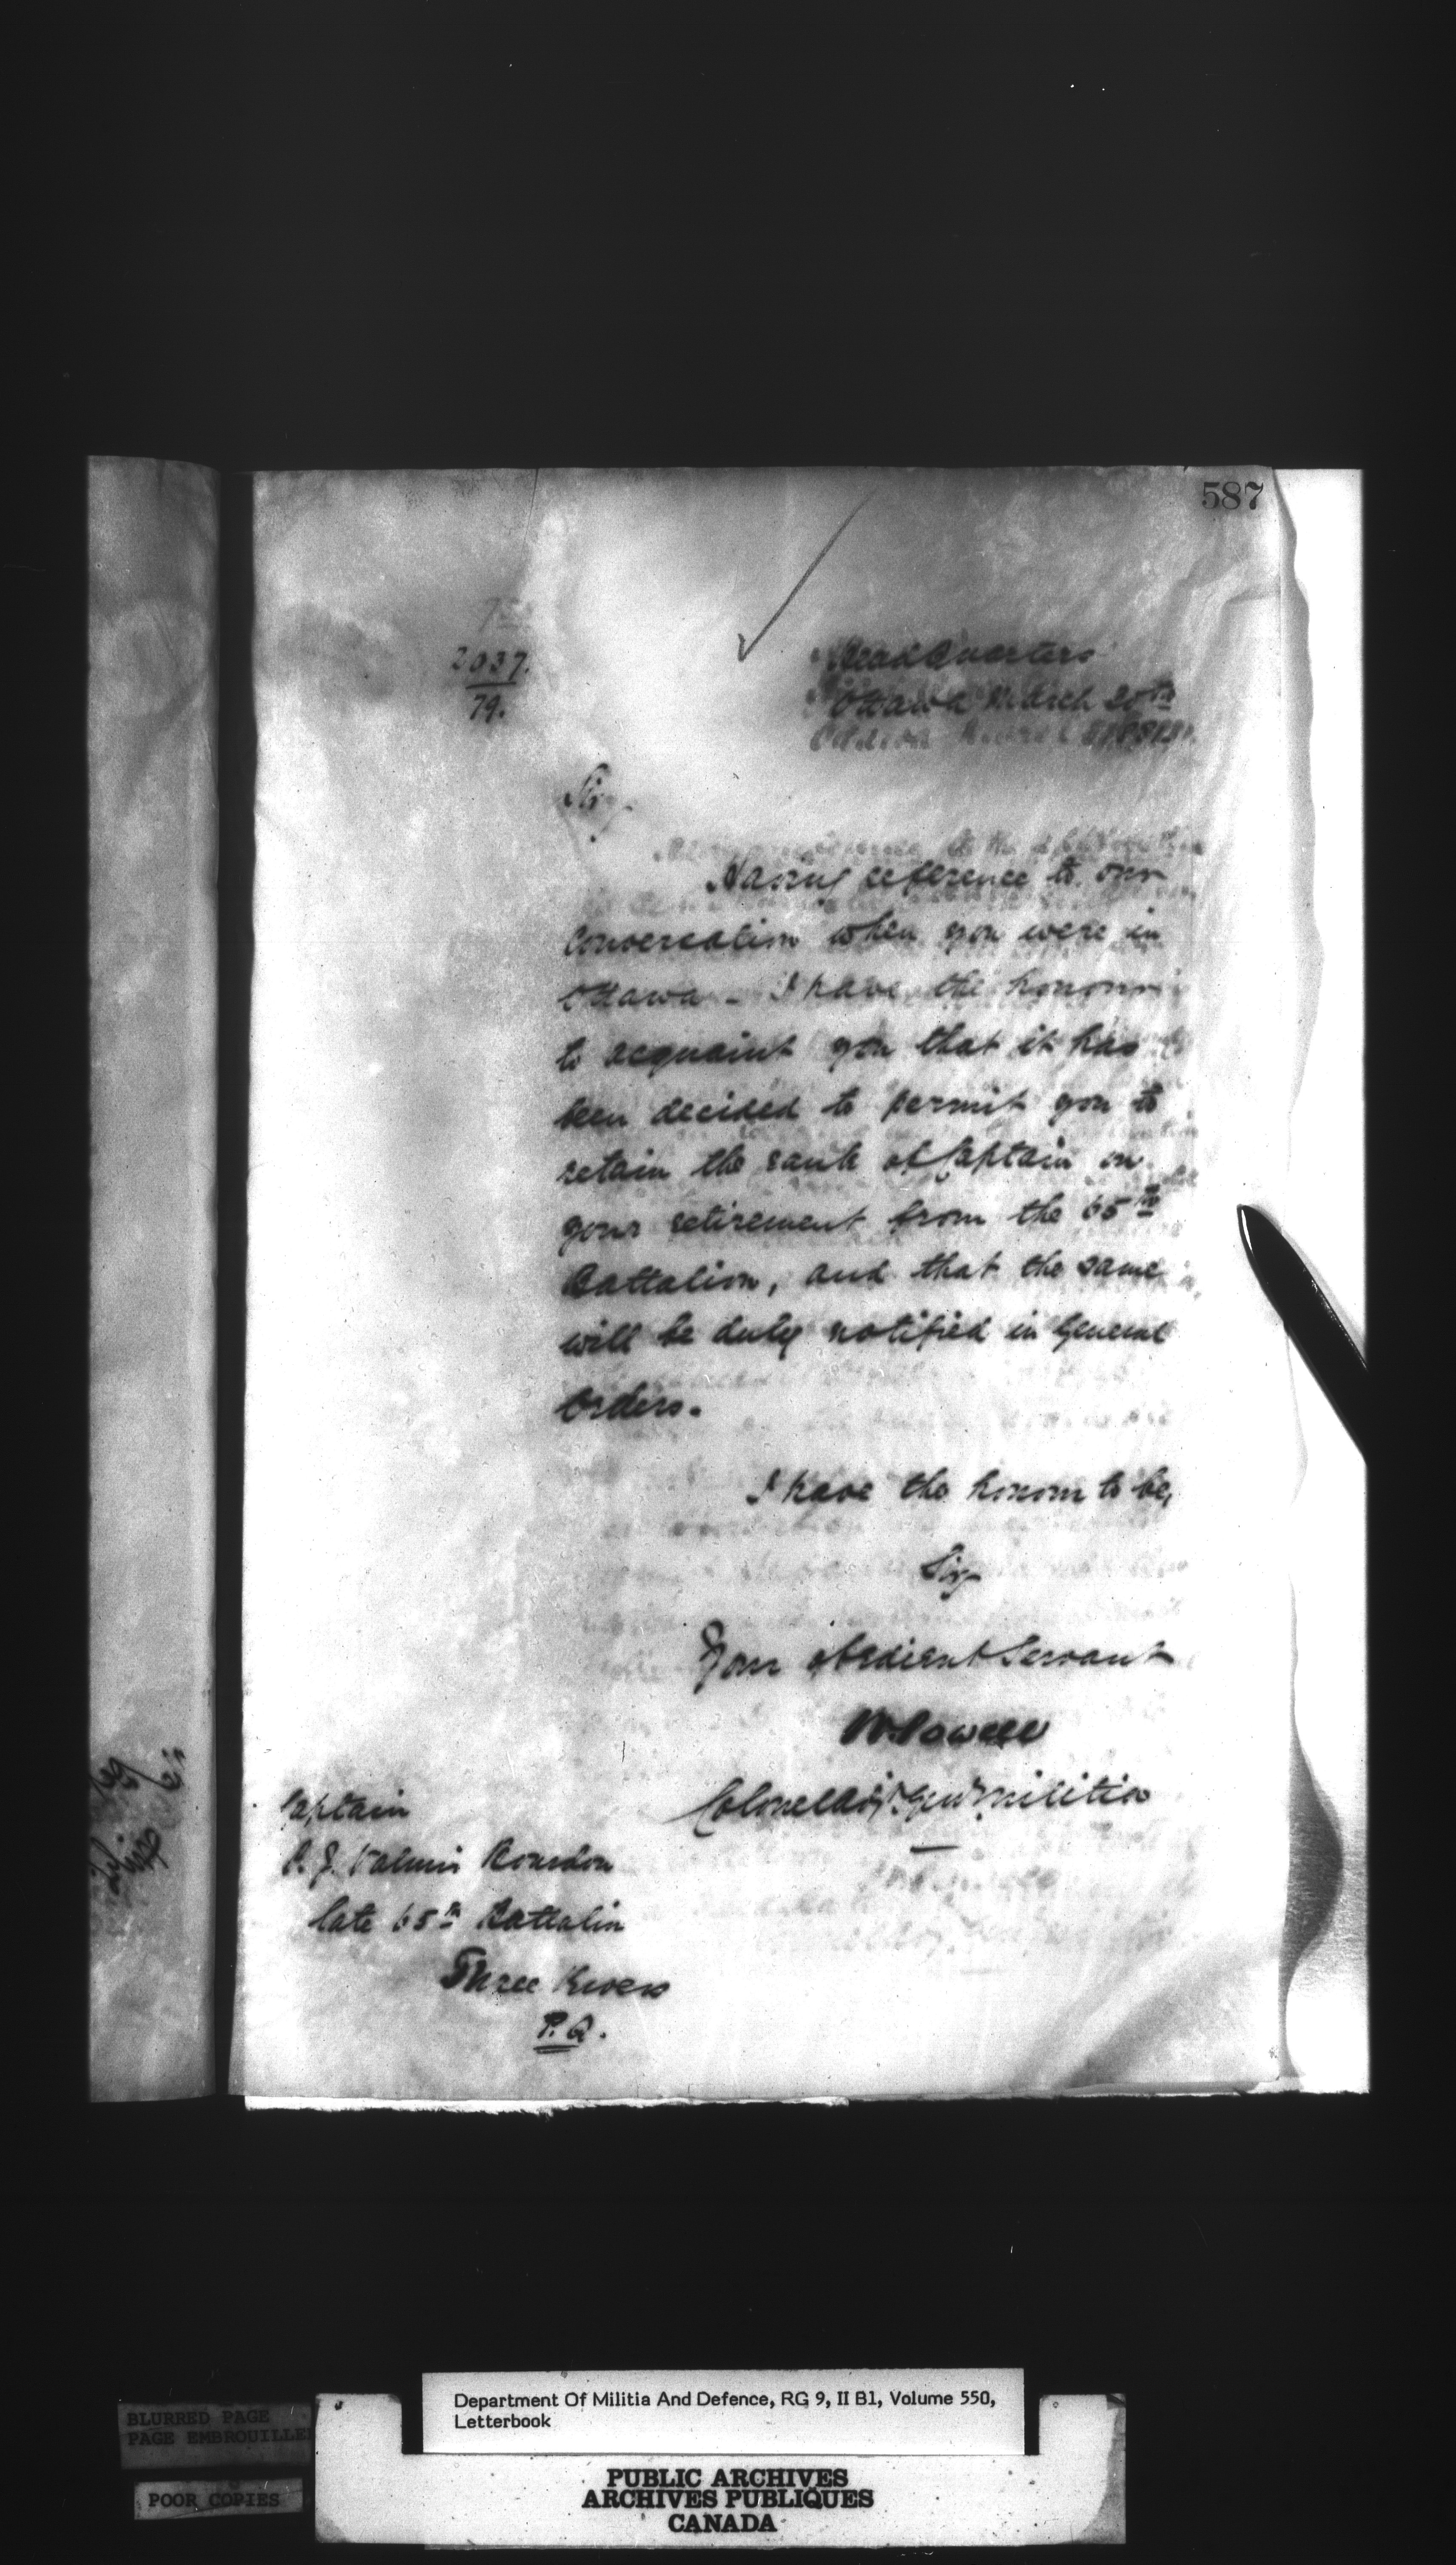 587
2037.
79.
Head Quarters
Ottawa March 20th
Sir,
Having reference to our
Conversation when you were in
Ottawa - I have the honour
to acquaint you that it has
been decided to permit you to
retain the rank of Captain on
your retirement from the 65th
Battalion, and that the same
will be duly notified in General
Orders.
I have the honour to be,
Sir,
Your obedient Servant
W. Powell
Colonel Adjt. Genl. Militia
Captain
J. Valmir
late 65th Battalion
Three Rivers
P.Q.
Department Of Militia And Defence, RG 9, II B1, Volume 550,
Letterbook
BLURRED PAGE
PAGE EMBROUILLE
POOR COPIES
PUBLIC ARCHIVES
ARCHIVES PUBLIQUES
CANADA